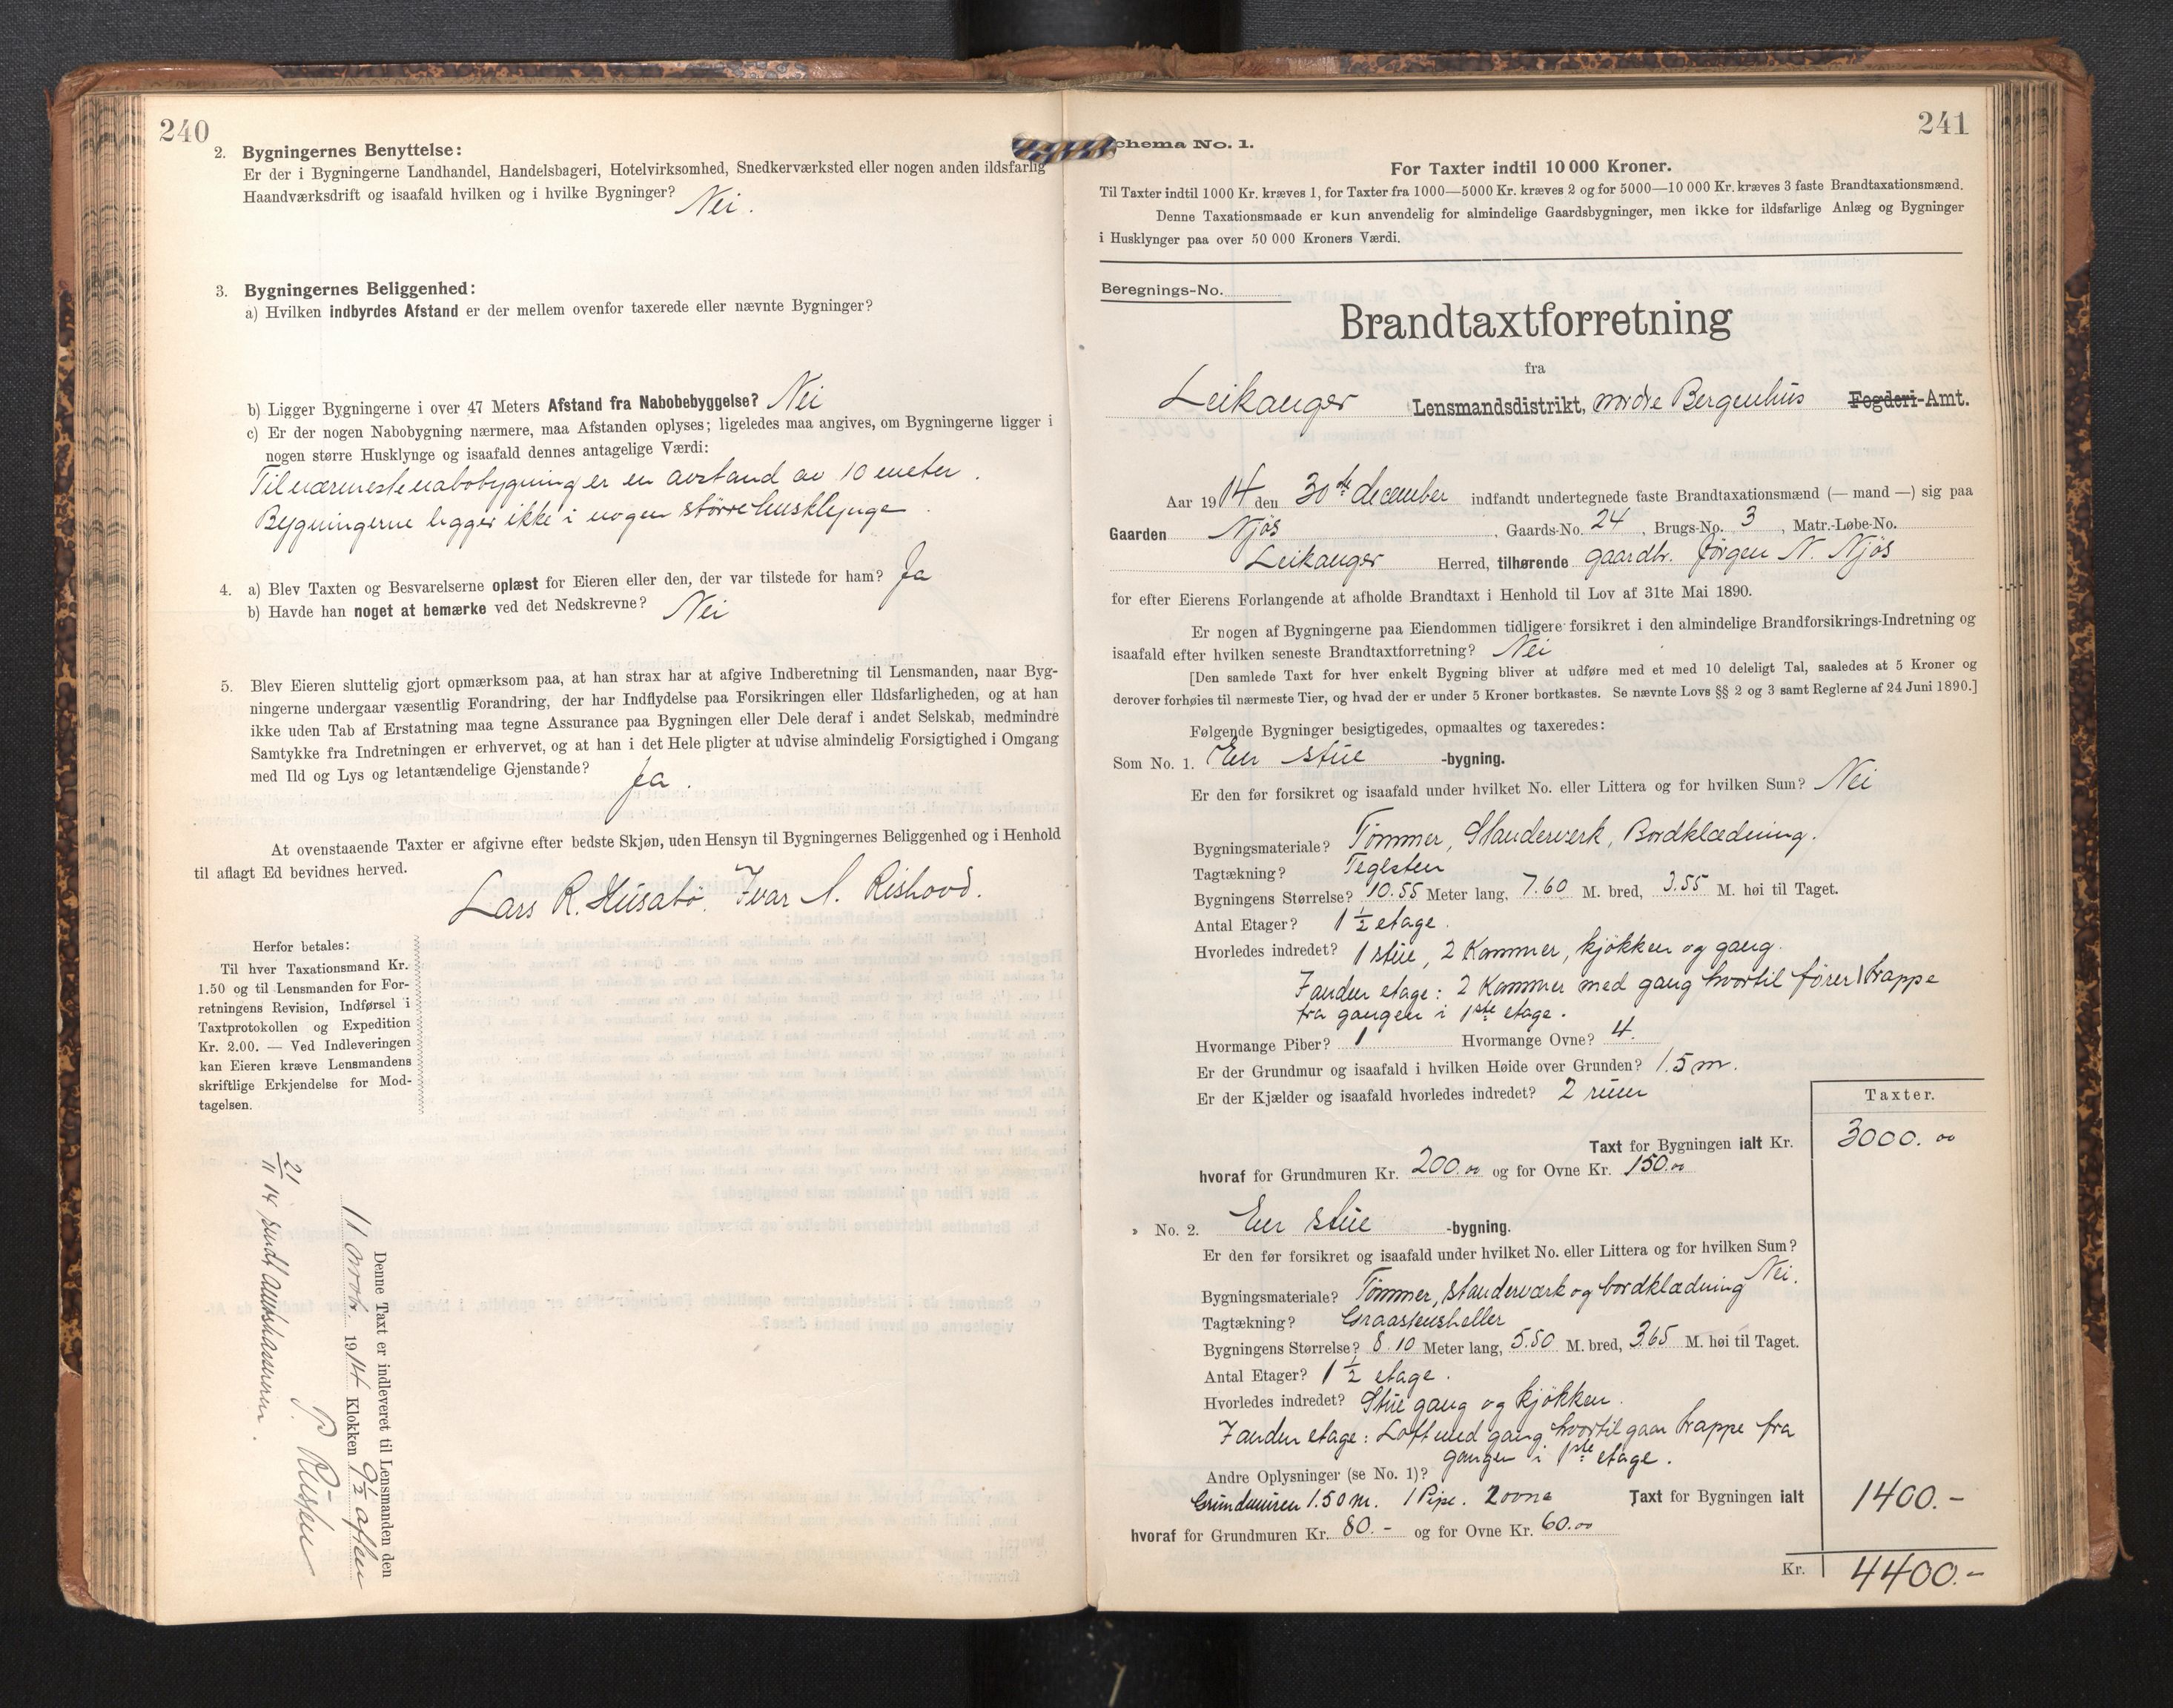 240
2. Bygningernes Benyttelse:
Er der i Bygningerne Landhandel, Handelsbageri, Hotelvirksomhed, Snedkerværksted eller nogen anden ildsfarlig
Haandværksdrift og isaafald hvilken og i hvilke Bygninger? Nei.
3. Bygningernes Beliggenhed:
a) Hvilken indbyrdes Afstand er der mellem ovenfor taxerede eller nævnte Bygninger?
b) Ligger Bygningerne i over 47 Meters Afstand fra Nabobebyggelse? Nei
c) Er der nogen Nabobygning nærmere, maa Afstanden oplyses; ligeledes maa angives, om Bygningerne ligger i
nogen større Husklynge og isaafald dennes antagelige Værdi:
Til nærmeste nabobygning er en avstand av 10 meter.
Bygningerne ligger ikke i nogen större husklynge.
4. a) Blev Taxten og Besvarelserne oplæst for Eieren eller den, der var tilstede for ham? Ja
b) Havde han noget at bemærke ved det Nedskrevne? Nei
5. Blev Eieren sluttelig gjort opmærksom paa, at han strax har at afgive Indberetning til Lensmanden, naar Byg-
ningerne undergaar væsentlig Forandring, der har Indflydelse paa Forsikringen eller Ildsfarligheden, og at han
ikke uden Tab af Erstatning maa tegne Assurance paa Bygningen eller Dele deraf i andet Selskab, medmindre
Samtykke fra Indretningen er erhvervet, og at han i det Hele pligter at udvise almindelig Forsigtighed i Omgang
med Ild og Lys og letantændelige Gjenstande? Ja.
At ovenstaaende Taxter er afgivne efter bedste Skjøn, uden Hensyn til Bygningernes Beliggenhed og i Henhold
til aflagt Ed bevidnes herved.
Lars R. Husabö. Ivar A. Rishovd.
Herfor betales:
Til hver Taxationsmand Kr.
1.50 og til Lensmanden for For-
retningens Revision, Indførsel i
Taxtprotokollen og Expedition
Kr. 2.00. — Ved Indleveringen
kan Eieren kræve Lensmandens
skriftlige Erkjendelse for Mod-
tagelsen.
Denne Taxt er indleveret til Lensmanden den
11 novbr. 1914 Klokken 9½ aften
21/11 14 sendt amtskasseren.
241
Schema No. 1.
For Taxter indtil 10 000 Kroner.
Til Taxter indtil 1000 Kr. kræves 1, for Taxter fra 1000—5000 Kr. kræves 2 og for 5000—10 000 Kr. kræves 3 faste Brandtaxationsmænd.
Denne Taxationsmaade er kun anvendelig for almindelige Gaardsbygninger, men ikke for ildsfarlige Anlæg og Bygninger
i Husklynger paa over 50 000 Kroners Værdi.
Beregnings-No.
Brandtaxtforretning
fra
Leikanger Lensmandsdistrikt, nordre Bergenhus Fogderi-Amt.
Aar 1914 den 30te december indfandt undertegnede faste Brandtaxationsmænd (— mand —) sig paa
Gaarden Njös, Gaards-No. 24, Brugs-No. 3, Matr.-Løbe-No.
Leikanger Herred, tilhørende gaardbr. Jörgen N. Njös
for efter Eierens Forlangende at afholde Brandtaxt i Henhold til Lov af 31te Mai 1890.
Er nogen af Bygningerne paa Eiendommen tidligere forsikret i den almindelige Brandforsikrings-Indretning og
isaafald efter hvilken seneste Brandtaxtforretning? Nei
[Den samlede Taxt for hver enkelt Bygning bliver at udføre med et med 10 deleligt Tal, saaledes at 5 Kroner og
derover forhøies til nærmeste Tier, og hvad der er under 5 Kroner bortkastes. Se nævnte Lovs §§ 2 og 3 samt Reglerne af 24 Juni 1890.]
Følgende Bygninger besigtigedes, opmaaltes og taxeredes:
Som No. 1. Een stue -bygning.
Er den før forsikret og isaafald under hvilket No. eller Littera og for hvilken Sum? Nei
Bygningsmateriale? Tömmer, Standerverk, Bordklædning.
Tagtækning? Teglsten
Bygningens Størrelse? 10.55 Meter lang, 7.60 M. bred, 3.55 M. høi til Taget.
Antal Etager? 1½ etage.
Hvorledes indredet? 1 stue, 2 Kammer, kjökken og gang.
I anden etage: 2 Kammer med gang hvortil förer 1 trappe
fra gangen i 1ste etage.
Hvormange Piber? 1 Hvormange Ovne? 4.
Er der Grundmur og isaafald i hvilken Høide over Grunden? 1.5 m.
Er der Kjælder og isaafald hvorledes indredet? 2 rum
Taxter.
Taxt for Bygningen ialt Kr. 3000.00
hvoraf for Grundmuren Kr. 200.00 og for Ovne Kr. 150.00
» No. 2. Een stue -bygning.
Er den før forsikret og isaafald under hvilket No. eller Littera og for hvilken Sum?
Nei.
Bygningsmateriale? Tömmer, standerværk og bordklædning
Tagtækning? Graastensheller
Bygningens Størrelse? 8.10 Meter lang, 5.50 M. bred, 3.65 M. høi til Taget.
Antal Etager? 1½ etage.
Hvorledes indredet? Stue gang og kjökken.
I anden etage: Loft med gang hvortil gaar trappe fra
gangen i 1ste etage.
Andre Oplysninger (se No. 1)?
Grundmuren 1.50 m. 1 Pipe. 2 ovne Taxt for Bygningen ialt 1400.-
hvoraf for Grundmuren Kr. 80.- og for Ovne Kr. 60.00
Kr. 4400.-